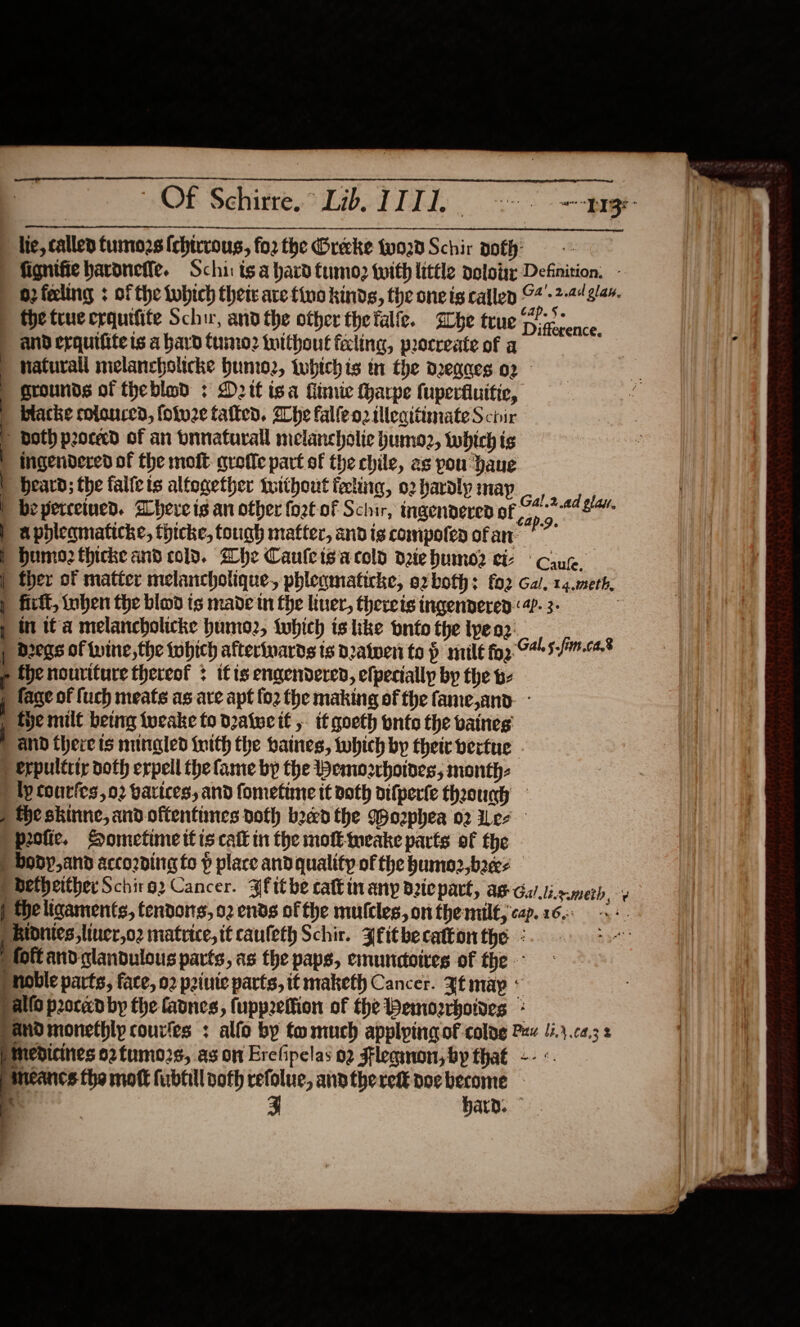 Of Schirre. Lib. IIII. 113
lie, called tumors schirrous, for the Greeke word Schir doth
signifie hardnesse. Schir is a hard tumor with little dolour Definition.
or feeling : of the which their are two kinds, the one is called Gal. 2. ad glau.
the true exquisite Schir, and the other the false. The true cap. 5.
Difference.
and exquisite is a hard tumor without feeling, procreate of a
naturall melancholicke humor, which is in the dregges or
grounds of the blood : Or it is a slimie sharpe superfluitie,
blacke coloured, sowre tasted. The false or illegitimate Schir
doth proceed of an unnaturall melancholie humor, which is
ingendered of the most grosse part of the chile, as you have
heard; the false is altogether without feeling, or hardly may
be perceived. There is an other sort of Schir, ingendered of Gal. 2. ad glau.
cap. 9.
a phlegmaticke, thicke, tough matter, and is composed of an
humor thicke and cold. The Cause is a cold drie humor ei- Cause.
ther of matter melancholique, phlegmaticke, or both : for Gal. 14. meth.
first, when the blood is made in the liver, there is ingendered cap. 3.
in it a melancholicke humor, which is like unto the lye or
dregs of wine, the which afterwards is drawen to ye milt for Gal. 5. sim. ca. 8
the nouriture thereof : it is engendered, especially by the u-
sage of such meats as are apt for the making of the same, and
the milt being weake to drawe it, it goeth unto the vaines
and there is mingled with the vaines, which by their vertue
expultrix doth expell the same by the Hemorrhoides, month-
ly courses, or varices, and sometime it doth disperse through
the skinne, and oftentimes doth breed the Morphea or Le-
prosie. Sometime it is cast in the most weake parts of the
body, and according to ye place and quality of the humor, bree-
deth either Schir or Cancer. If it be cast in any drie part, as Gal. li. 7. meth.
the ligaments, tendons, or ends of the muscles, on the milt, cap. 16.
kidnies, liver, or matrice, it causeth Schir. If it be cast on the
soft and glandulous parts, as the paps, emunctoires of the
noble parts, face, or privie parts, it maketh Cancer. It may
also proceed by the sadnes, suppression of the Hemorrhoides
and monethly courses : also by too much applying of colde Pau li. 3. ca. 32
medicines or tumors, as on Eresipelas or Flegmon, by that
meanes the most subtill doth resolve, and the rest doe become
I hard.